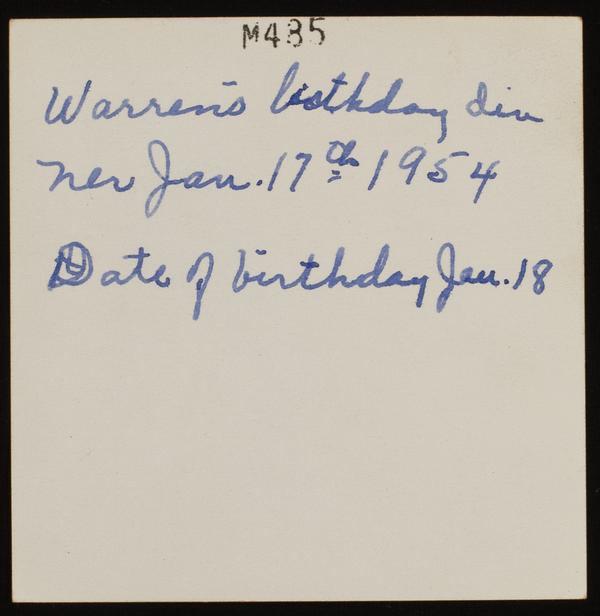 M435
Warren's birthday din
ner Jan. 17th 1954
Date of birthday Jan. 18